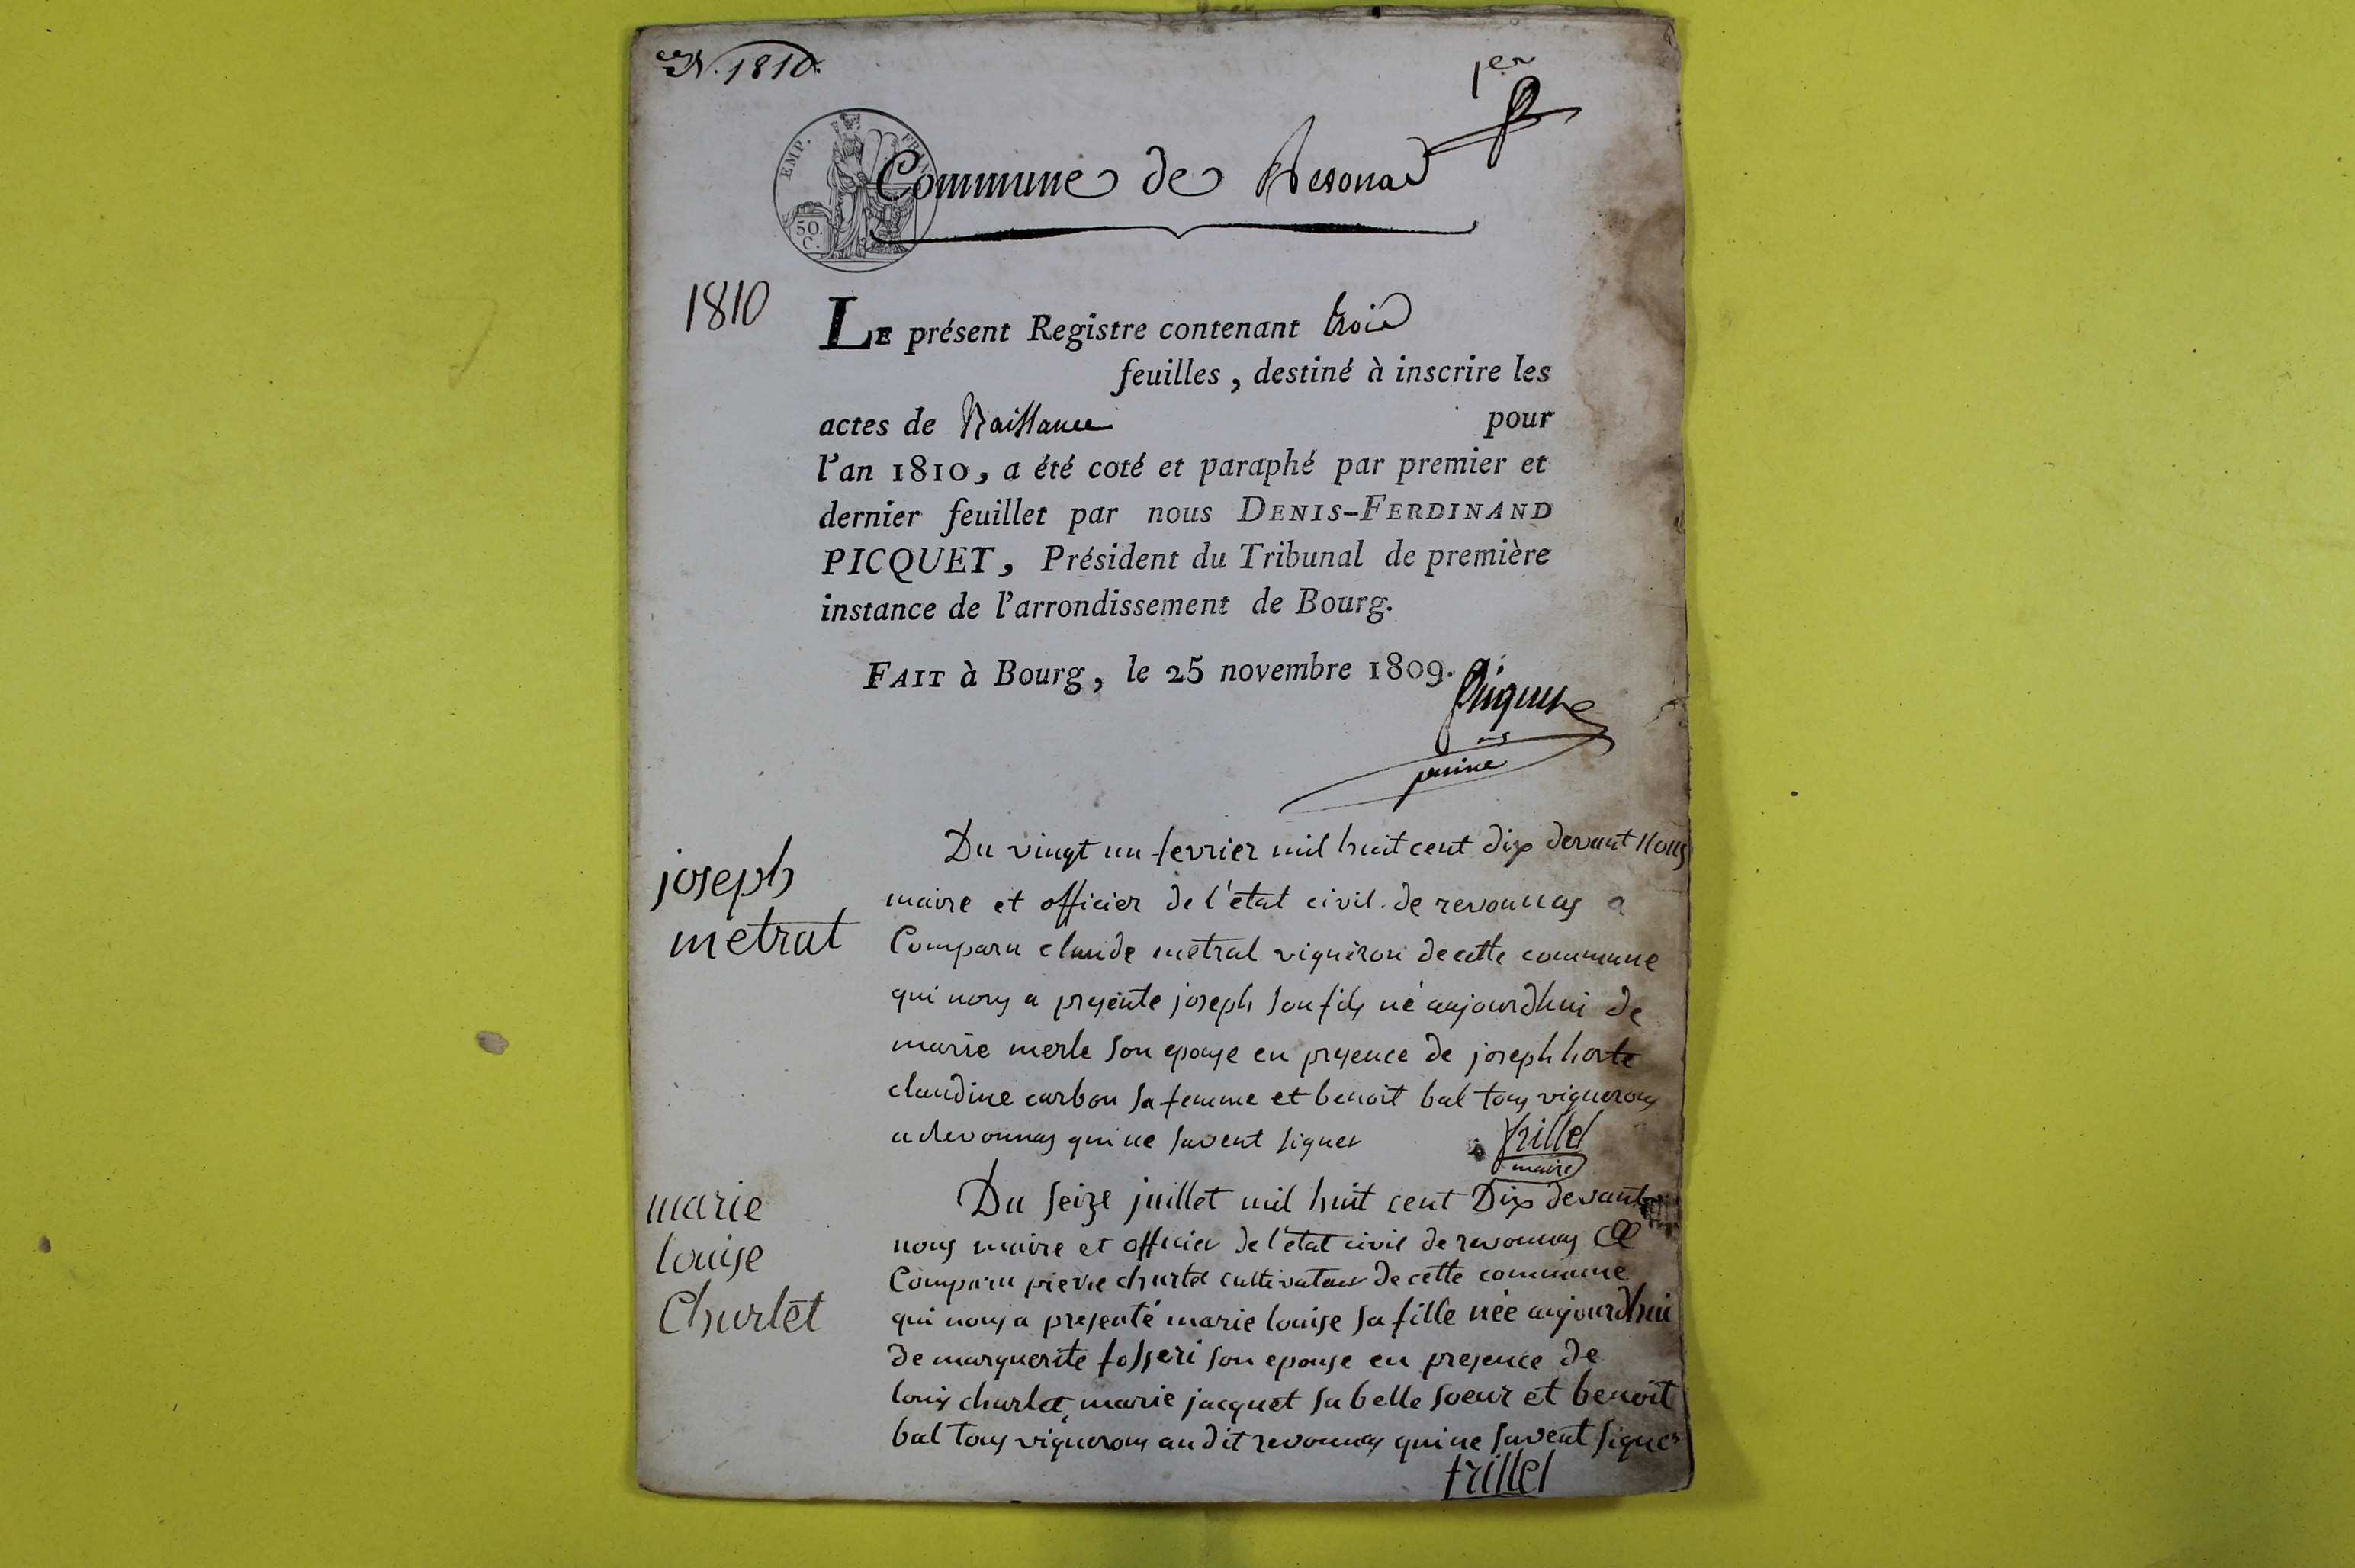 N. 1810.
1er
EMP. FRA
50. C.
Commune de Revonas
1810
LE présent Registre contenant trois
feuilles, destiné à inscrire les
actes de Naissance pour
l'an 1810, a été coté et paraphé par premier et
dernier feuillet par nous DENIS-FERDINAND
PICQUET, Président du Tribunal de première
instance de l'arrondissement de Bourg.
FAIT à Bourg, le 25 novembre 1809.
Picquet
joseph
metral
Du vingt un fevrier mil huit cent dix devant Nous
maire et officier de l'état civil de revonnas a
Comparu claude métral vigneron de cette commune
qui nous a presenté joseph son fils né aujourdhui de
marie merle son epouse en presence de joseph
claudine carbon sa femme et benoit bal tous vignerons
a revonnas qui ne savent signer
trillet
maire
marie
louise
Churlet
Du seize juillet mil huit cent Dix devant
nous maire et officier de l'état civil de revonnas a
Comparu pierre churlet cultivateur de cette commune
qui nous a presenté marie louise sa fille née aujourdhui
de marguerite fosseri son epouse en presence de
louis churlet, marie jacquet sa belle soeur et benoit
bal tous vignerons au dit revonnas qui ne savent signer
trillet